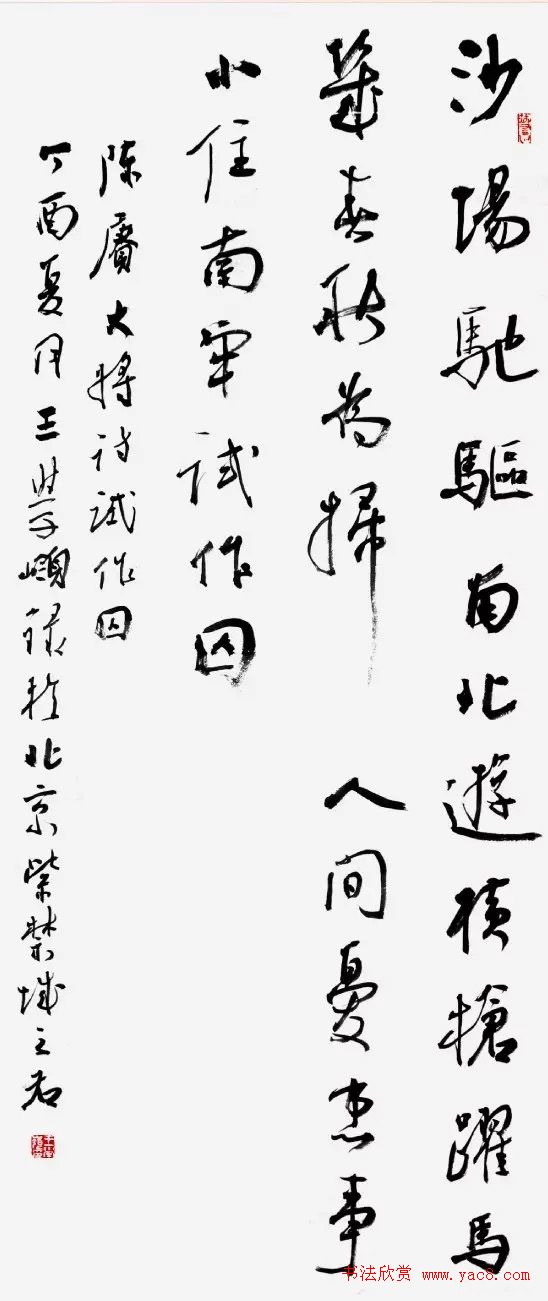 沙場馳驅南北遊橫槍躍馬
幾春秋為掃 人間憂患事
小住南牢試作囚
陳賡大將詩試作囚
丁酉夏月王學嶺錄於北京紫禁城之右
书法欣赏 www.yac8.com